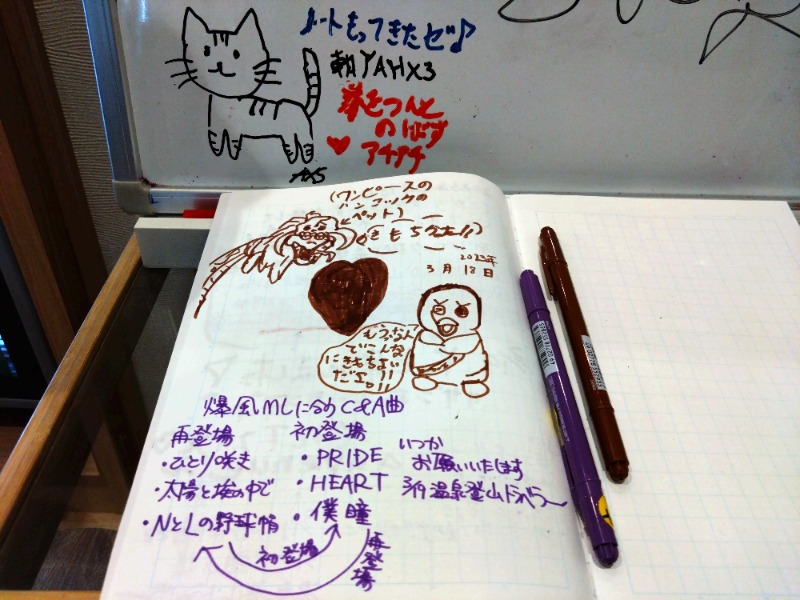 ノートもってきたゼ♪
朝YAHX3
芽をつんと
のばす
アチアチ
(ワンピースの
ハンコックの
ペット)
きもちえー!!
2023年
3月18日
もう、なん
でこんな
にきもちよい
だェ。!!
爆風MLに合うC&A曲
再登場 初登場
・ひとり咲き ・PRIDE いつか
お願いいたします
・太陽と埃の中で ・HEART 温泉登山ドラバラー
・NとLの野球帽 ・僕瞳
初登場
再登場